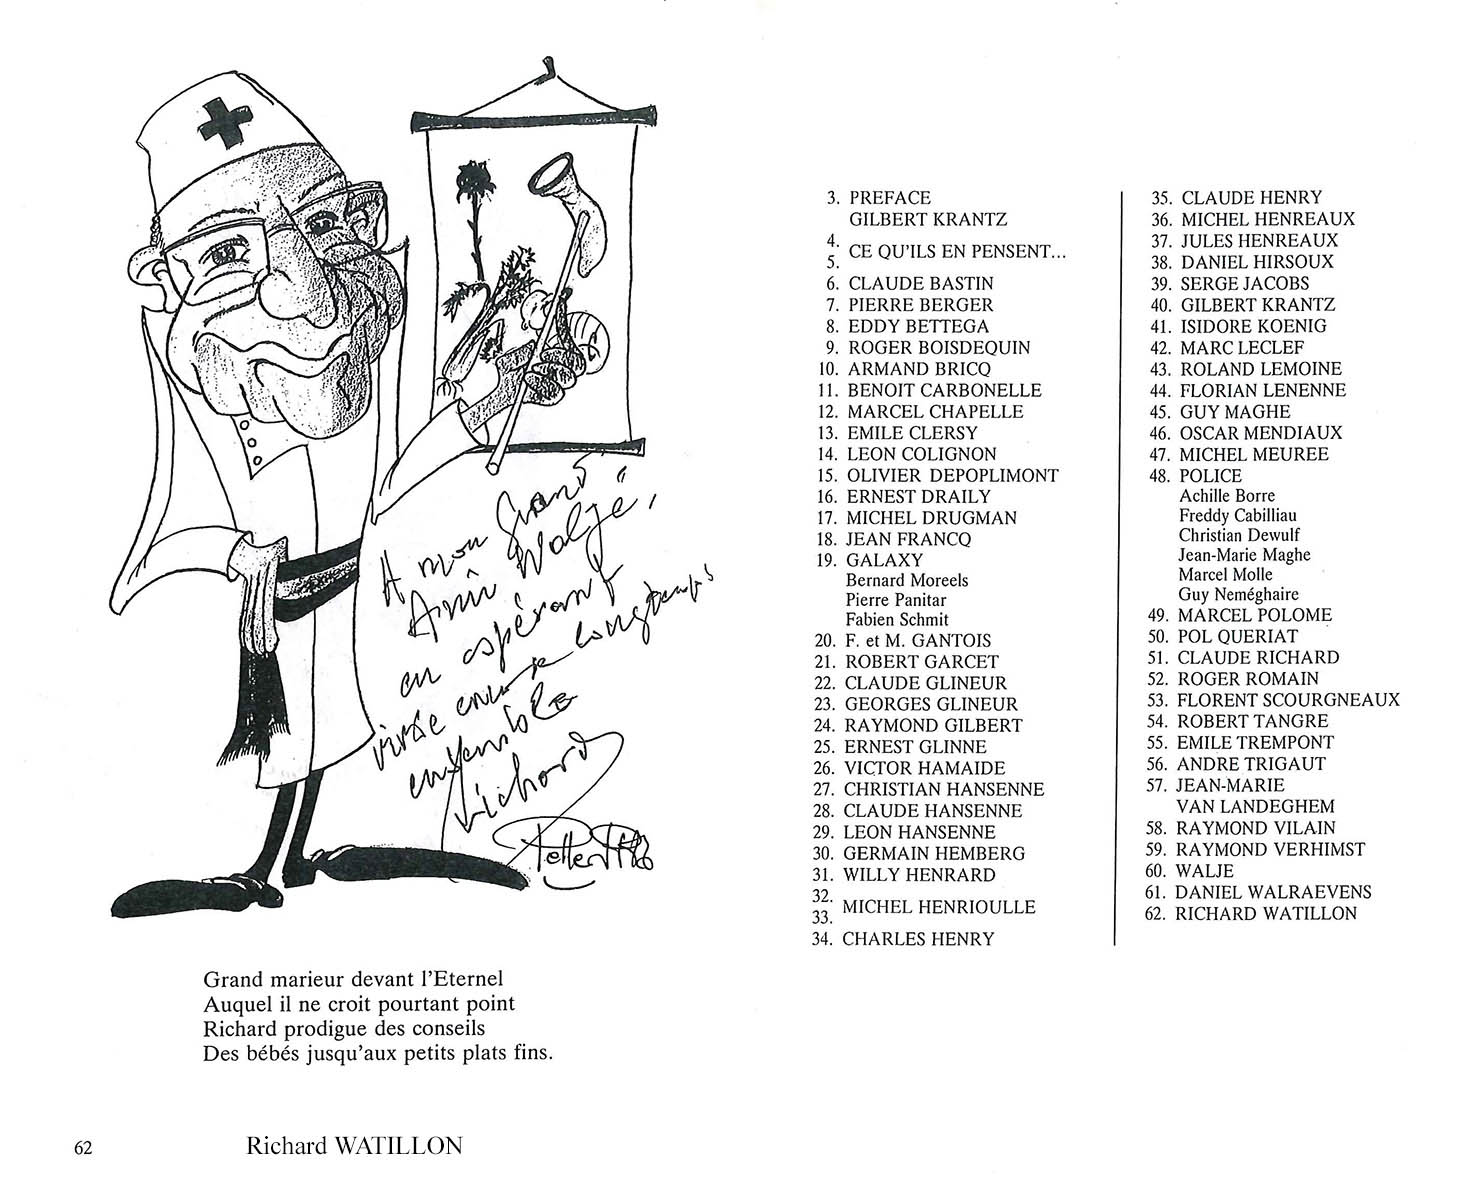 A mon Grand
Ami "Waljé",
en espérant
vivre encore longtemps
ensemble
Richard
Grand marieur devant l'Eternel
Auquel il ne croit pourtant point
Richard prodigue des conseils
Des bébés jusqu'aux petits plats fins.
62
Richard WATILLON
3. PREFACE
GILBERT KRANTZ
4.
5. CE QU'ILS EN PENSENT...
6. CLAUDE BASTIN
7. PIERRE BERGER
8. EDDY BETTEGA
9. ROGER BOISDEQUIN
10. ARMAND BRICQ
11. BENOIT CARBONELLE
12. MARCEL CHAPELLE
13. EMILE CLERSY
14. LEON COLIGNON
15. OLIVIER DEPOPLIMONT
16. ERNEST DRAILY
17. MICHEL DRUGMAN
18. JEAN FRANCQ
19. GALAXY
Bernard Moreels
Pierre Panitar
Fabien Schmit
20. F. et M. GANTOIS
21. ROBERT GARCET
22. CLAUDE GLINEUR
23. GEORGES GLINEUR
24. RAYMOND GILBERT
25. ERNEST GLINNE
26. VICTOR HAMAIDE
27. CHRISTIAN HANSENNE
28. CLAUDE HANSENNE
29. LEON HANSENNE
30. GERMAIN HEMBERG
31. WILLY HENRARD
32.
33. MICHEL HENRIOULLE
34. CHARLES HENRY
35. CLAUDE HENRY
36. MICHEL HENREAUX
37. JULES HENREAUX
38. DANIEL HIRSOUX
39. SERGE JACOBS
40. GILBERT KRANTZ
41. ISIDORE KOENIG
42. MARC LECLEF
43. ROLAND LEMOINE
44. FLORIAN LENENNE
45. GUY MAGHE
46. OSCAR MENDIAUX
47. MICHEL MEUREE
48. POLICE
Achille Borre
Freddy Cabilliau
Christian Dewulf
Jean-Marie Maghe
Marcel Molle
Guy Neméghaire
49. MARCEL POLOME
50. POL QUERIAT
51. CLAUDE RICHARD
52. ROGER ROMAIN
53. FLORENT SCOURGNEAUX
54. ROBERT TANGRE
55. EMILE TREMPONT
56. ANDRE TRIGAUT
57. JEAN-MARIE
VAN LANDEGHEM
58. RAYMOND VILAIN
59. RAYMOND VERHIMST
60. WALJE
61. DANIEL WALRAEVENS
62. RICHARD WATILLON